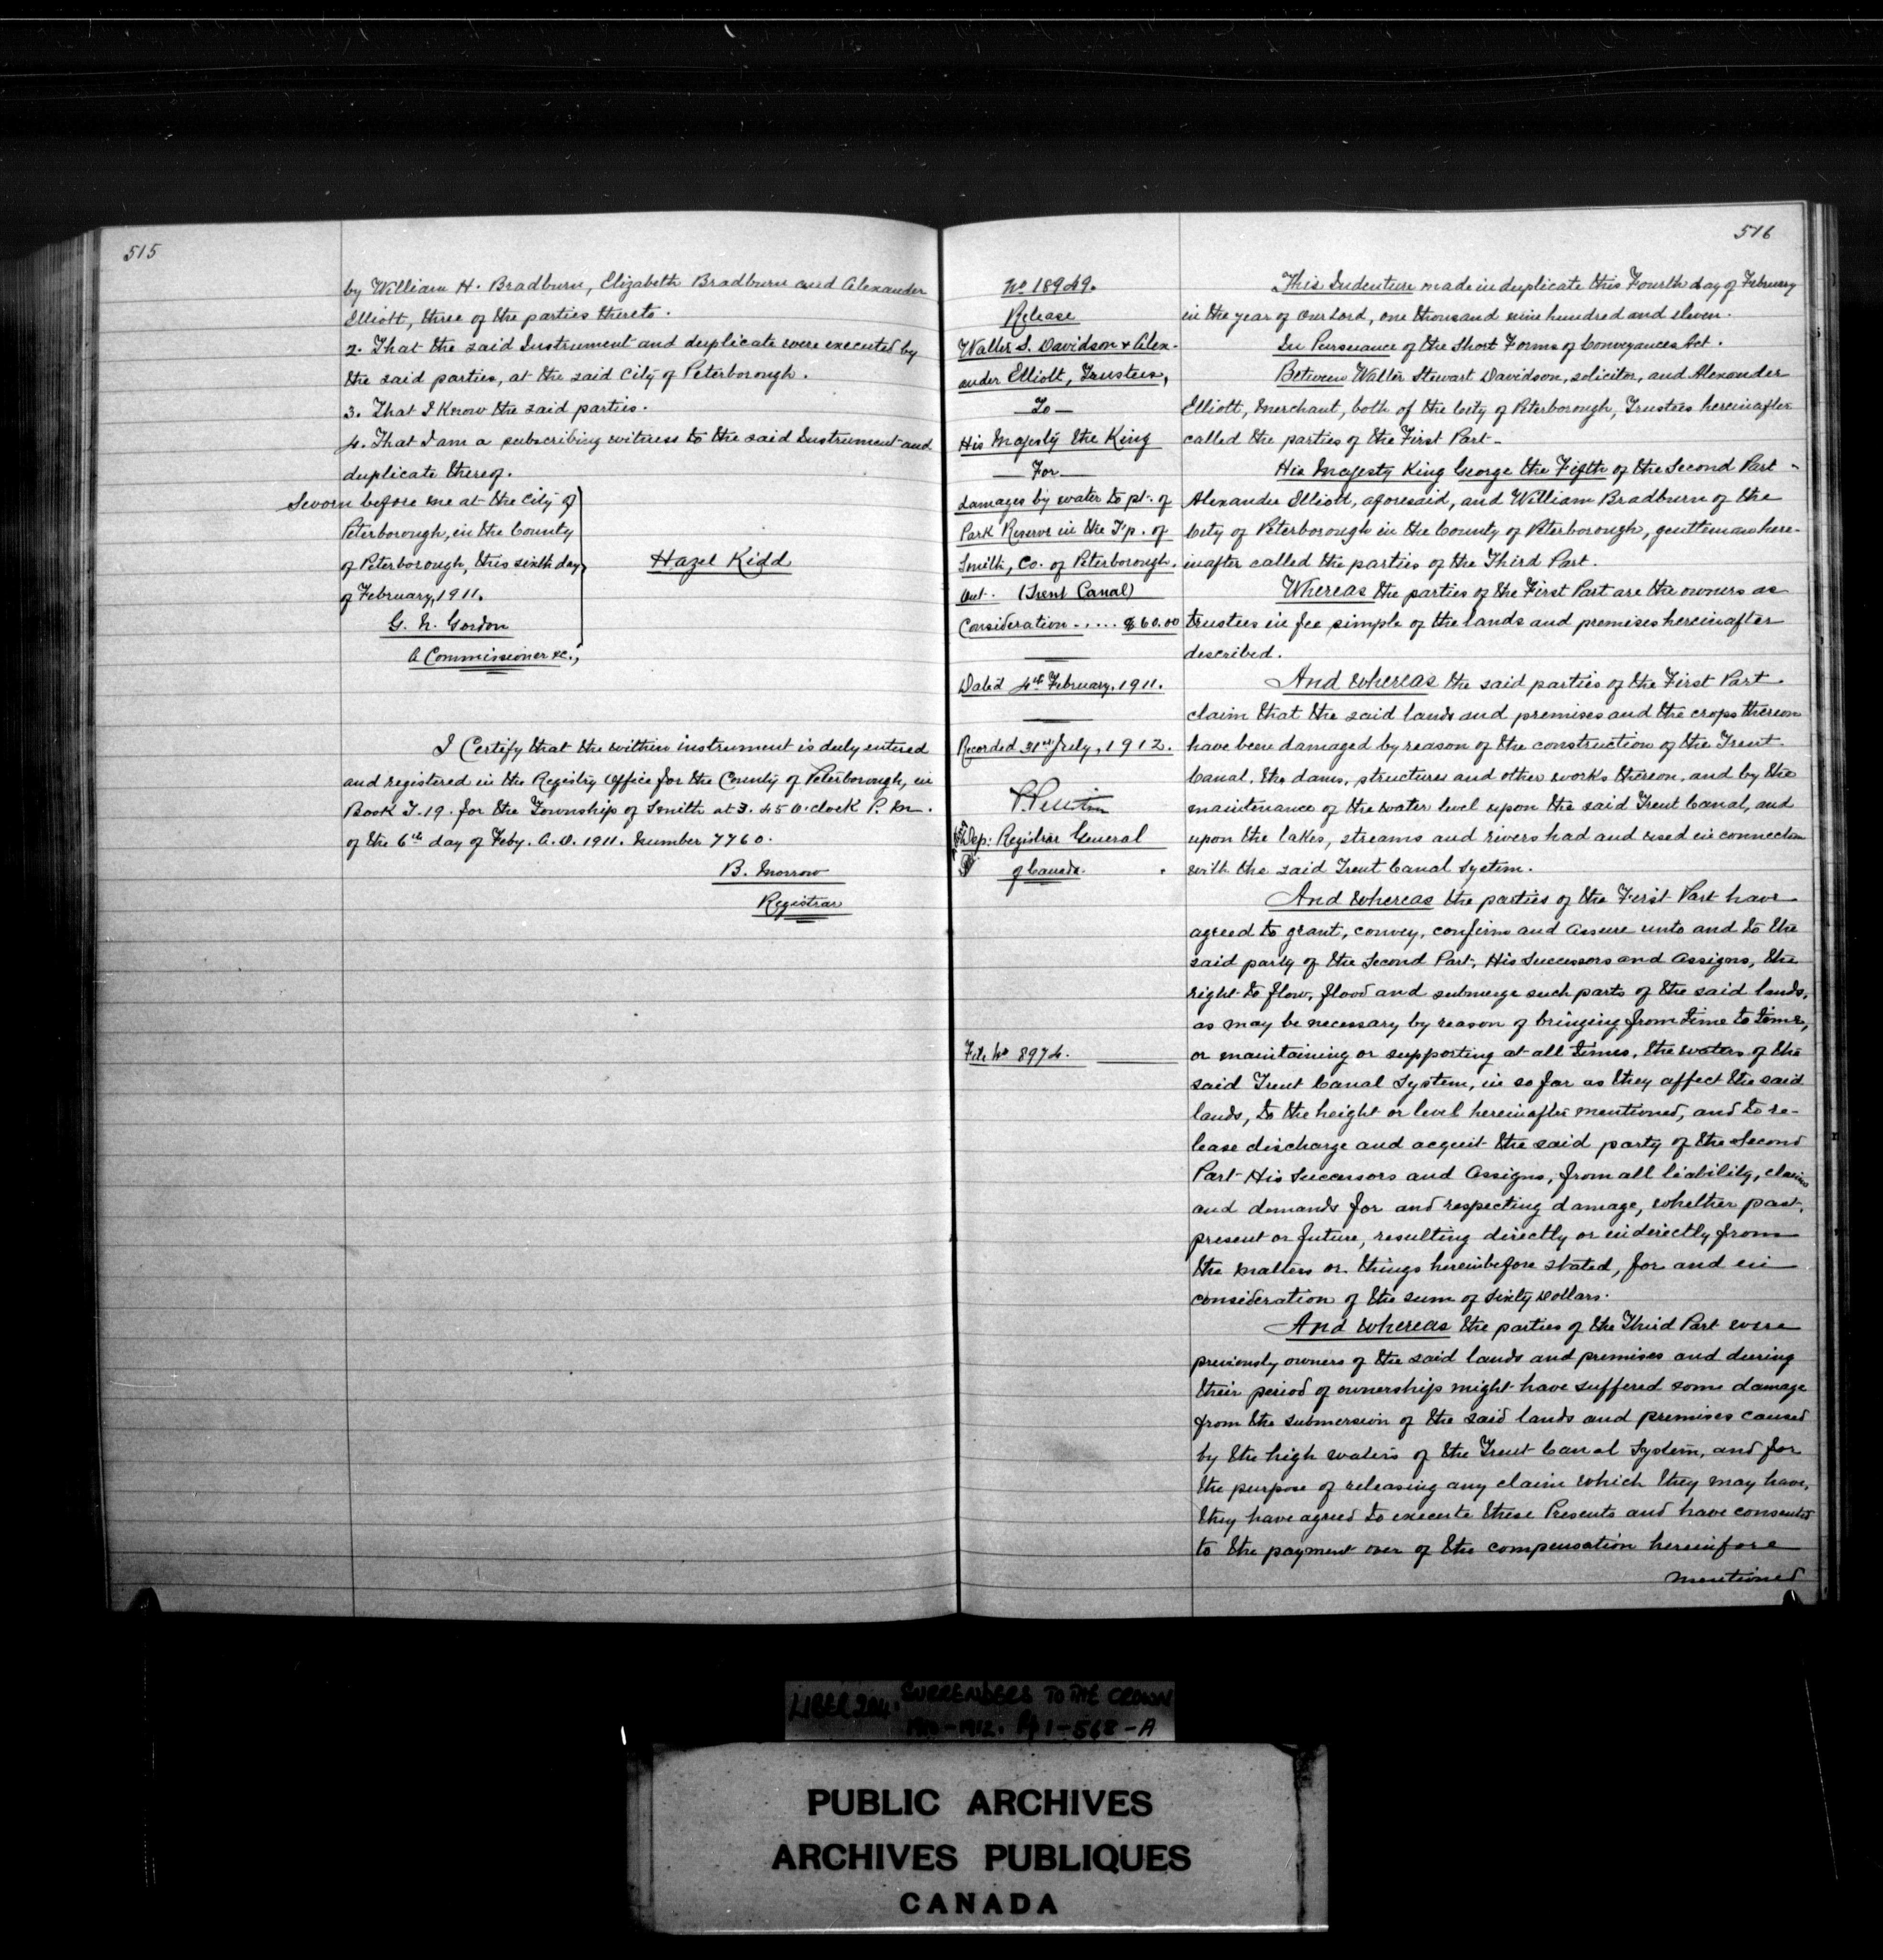 515
by William H. Bradburn, Elizabeth Bradburn and Alexander
Elliott, three of the parties thereto.
2. That the said Instrument and duplicate were executed by
the said parties, at the said City of Peterborough.
3. That I know the said parties.
4. That I am a subscribing witness to the said Instrument and
duplicate thereof.
Sworn before me at the City of
Peterborough, in the County
of Peterborough, this sixth day
of February, 1911.
Hazel Kidd
G. N. Gordon
A Commissioner &c.,
I Certify that the within instrument is duly entered
and registered in the Registry Office for the County of Peterborough, in
Book T. 19. for the Township of Smith at 3.45 O'clock P. M.
of the 6th day of Feby. A.D. 1911. Number 7760.
B. Morrow
Registrar
516
No 18949.
Release
Walter S. Davidson & Alex-
ander Elliott, Trustees,
To
His Majesty the King
For
damages by water to pt. of
Park Reserve in the T'p. of
Smith, Co. of Peterborough.
Ont. (Trent Canal)
Consideration ..... $60.00
Dated 4th February, 1911.
Recorded 31st July, 1912.
Dep: Registrar General
of Canada.
File No 8974.
This Indenture made in duplicate this Fourth day of February
in the year of Our Lord, one thousand nine hundred and eleven.
In Pursuance of the Short Forms of Conveyances Act.
Between Walter Stewart Davidson, solicitor, and Alexander
Elliott, Merchant, both of the City of Peterborough, Trustees hereinafter
called the parties of the First Part-
His Majesty King George the Fifth of the Second Part -
Alexander Elliott, aforesaid, and William Bradburn of the
City of Peterborough in the County of Peterborough, gentleman here-
inafter called the parties of the Third Part.
Whereas the parties of the First Part are the owners as
trustees in fee simple of the lands and premises hereinafter
described.
And whereas the said parties of the First Part
claim that the said lands and premises and the crops thereon
have been damaged by reason of the construction of the Trent
Canal, the dams, structures and other works thereon, and by the
maintenance of the water level upon the said Trent Canal, and
upon the lakes, streams and rivers had and used in connection
with the said Trent Canal System.
And whereas the parties of the First Part have
agreed to grant, convey, confirm and assure unto and to the
said party of the Second Part, His Successors and Assigns, the
right to flow, flood and submerge such parts of the said lands,
as may be necessary by reason of bringing from time to time,
or maintaining or supporting at all times, the waters of the
said Trent Canal System, in so far as they affect the said
lands, to the height or level hereinafter mentioned, and to re-
lease discharge and acquit the said party of the Second
Part His Successors and Assigns, from all liability, claims
and demands for and respecting damage, whether past,
present or future, resulting directly or indirectly from
the matters or things hereinbefore stated, for and in
consideration of the sum of Sixty Dollars.
And whereas the parties of the Third Part were
previously owners of the said lands and premises and during
their period of ownership might have suffered some damage
from the submersion of the said lands and premises caused
by the high waters of the Trent Canal System, and for
the purpose of releasing any claim which they may have,
they have agreed to execute these Presents and have consented
to the payment over of the compensation hereinfore
mentioned
LIBER 204. SURRENDERS TO THE CROWN
1910-1912. Pp 1-568-A
PUBLIC ARCHIVES
ARCHIVES PUBLIQUES
CANADA